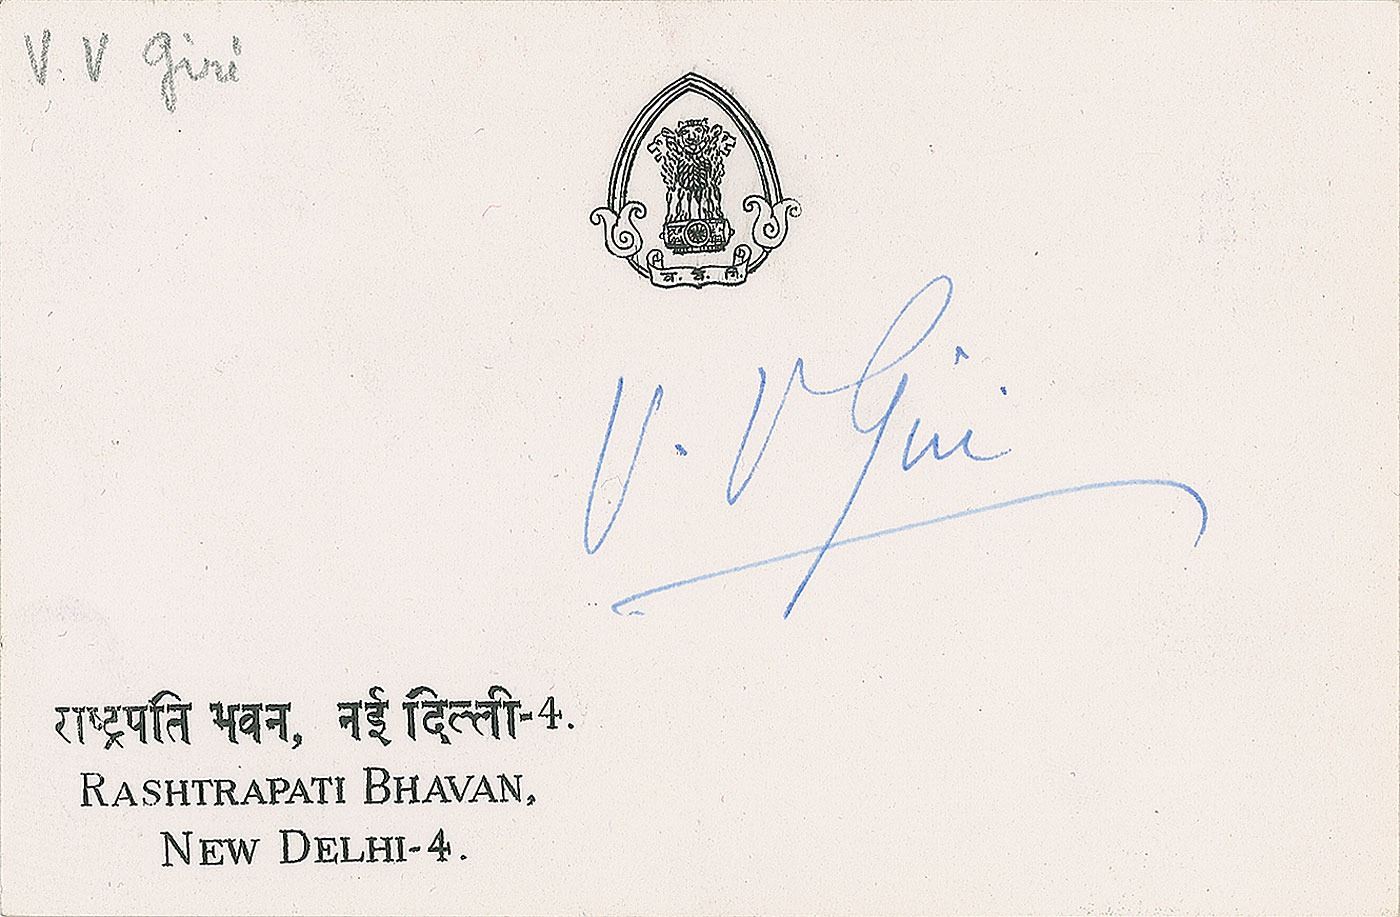 V. V Giri
व. वें. गि.
V. V Giri
राष्ट्रपति भवन, नई दिल्ली-4.
RASHTRAPATI BHAVAN,
NEW DELHI-4.